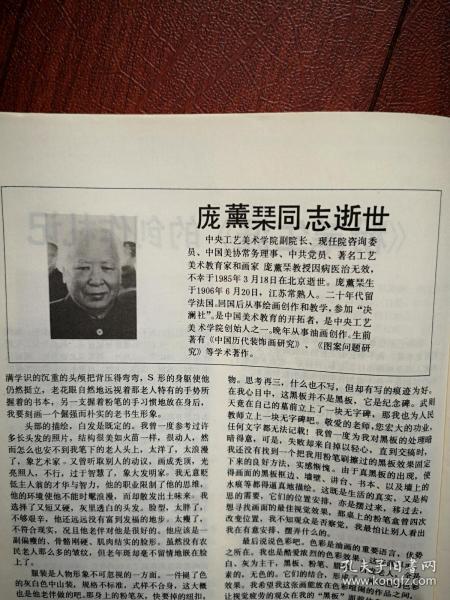 庞薰琹同志逝世
中央工艺美术学院副院长、现任院咨询委
员、中国美协常务理事、中共党员、著名工艺
美术教育家和画家 庞薰琹教授因病医治无效，
不幸于1985年3月18日在北京逝世。庞薰琹生
于1906年6月20日，江苏常熟人。二十年代留
学法国。回国后从事绘画创作和教学，参加“决
澜社”。是中国美术教育的开拓者，是中央工艺
美术学院创始人之一。晚年从事油画创作。生前
著有《中国历代装饰画研究》、《图案问题研
究》等学术著作。
满学识的沉重的头颅把背压得弯弯，S形的身躯使他
仍然挺立，老花眼自然地远视着那老人特有的手势所
握着的书本，另一支握着粉笔的手习惯地放在身后，
我要刻画一个倔强而朴实的老书生形象。
头部的描绘，白发是既定的。我曾一度参考过许
多长头发的照片，结构很美如火苗一样，很动人，然
而怎么也安不到我笔下的老人头上，太洋了，太浪漫
了，象艺术家。又曾听取别人的动议，画成秃顶，光
亮照人，不行，过于智慧了，象大发明家。我无意贬
低主人翁的才华与智力，他的职业限制了他的思维，
他的环境使他不能时髦浪漫，而却散发出土味来。我
选择了又短又硬，灰里透白的头发。脸型，太胖了，
不够艰辛，他还远远没有富到发福的地步。太瘦了，
不符合现实，况且他老伴对他是长好的。他应该是一
副偏瘦的、骨骼刚硬、肌肉结实的脸形。虽然没有农
民老人那么多的皱纹，但老年斑却毫不留情地嵌在脸
上了。
服装是人物形象不可忽视的一方面，一件褪了色
的灰白色中山装，规格不标准，式样不合身，这大概
也是他老伴做的吧。那身上的粉笔灰，快要掉的纽扣，
物。思考再三，什么也不写，但却有写的痕迹为好。
在我心目中，这黑板并不是黑板，它是纪念碑。武则
天竟在自己的墓前立上了一块无字碑，那我也为人民
教师立上一块无字碑吧。敬爱的老师，您宏大的功业，
任何文字都无法记载！我曾一度为我对黑板的处理暗
暗得意，可是，失败却来自掉以轻心，直到交稿时，
我还没有找到一个把我用粉笔刷擦过的黑板效果固定
下来的良好方法，实感惭愧。由于真黑板的出现，使
得画面的黑板框边、墙壁、讲台、书本、以及墙上的
水痕等都得逼真地描绘。这既是生活的真实，又是构
思的需要，它们的位置安排，亦是摆过来，移过去，
想寻找画面的最佳视觉效果，那桌上的粉笔盒曾四次
改变位置，我不知观众是否察觉，我最怕让别人看出
我在有意安排、摆弄什么的。
最后说说色彩吧。色彩是油画的重要语言，优势
之所在。我也是酷爱浓烈的色彩效果。